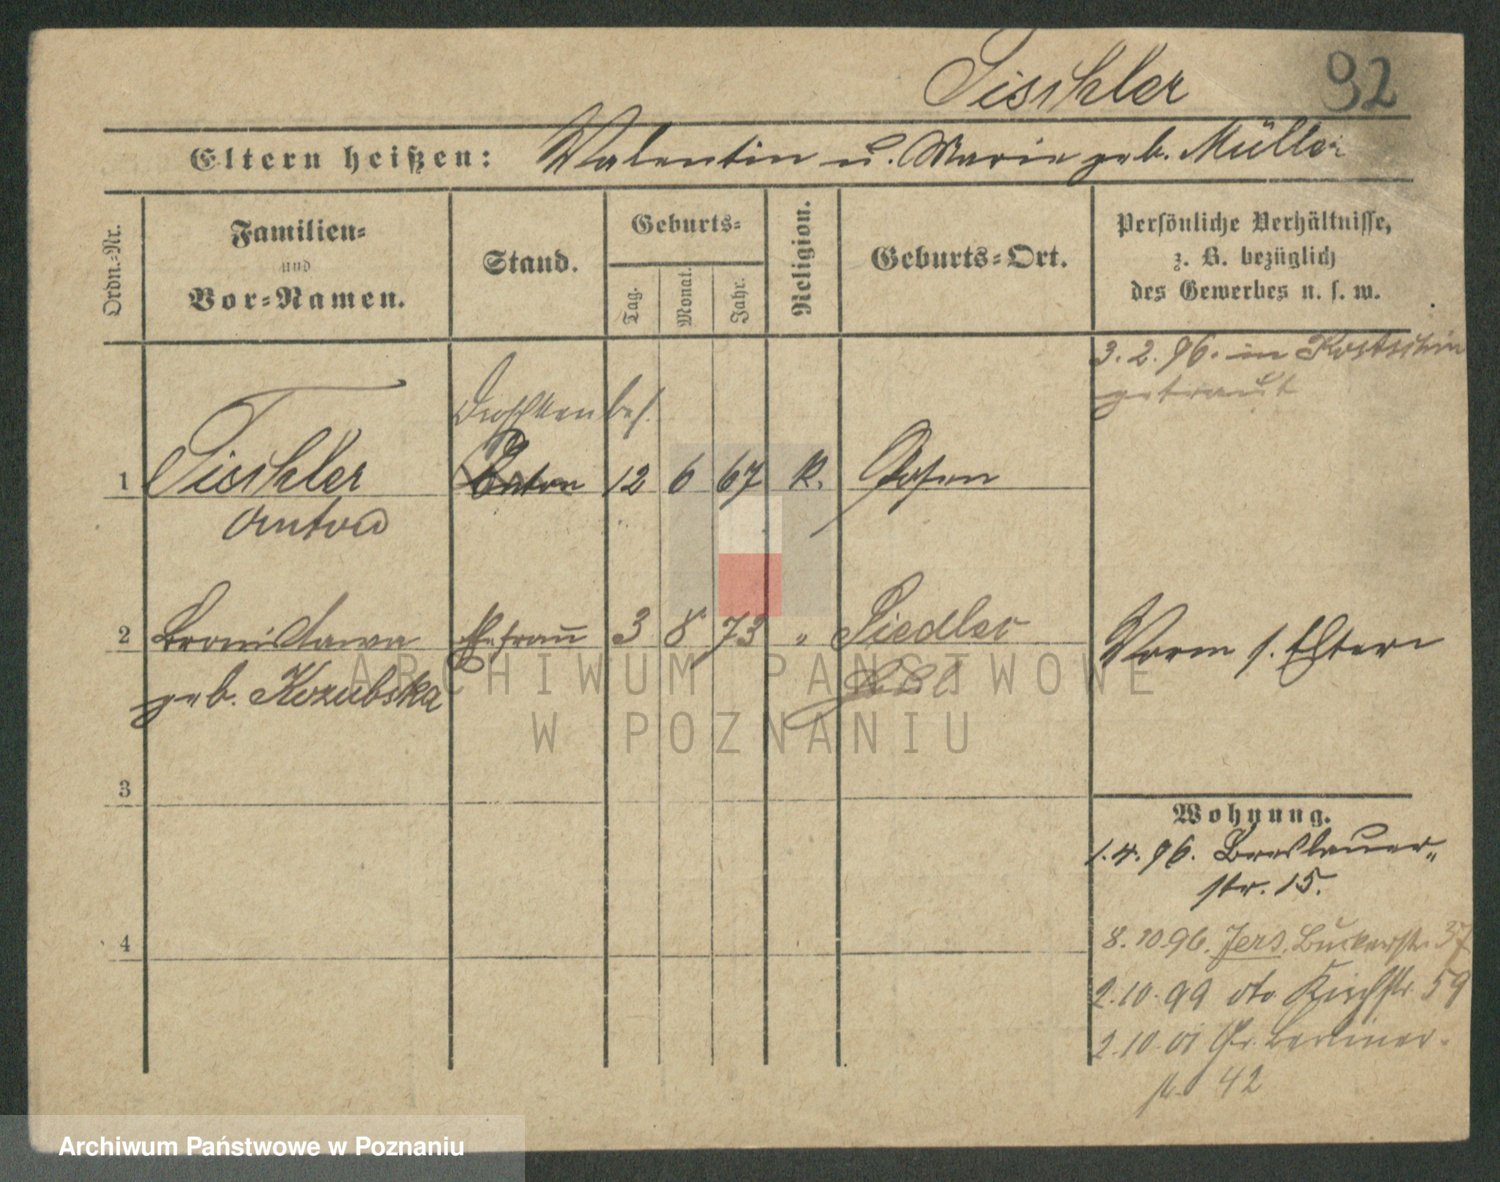 Tischler 92
Eltern heißen: Valentin u. Marie geb. Müller
Ordn.-Nr.
Familien-
und
Vor-Namen.
Stand.
Geburts-
Tag.
Monat.
Jahr.
Religion.
Geburts-Ort.
Persönliche Verhältnisse,
z. B. bezüglich
des Gewerbes u. s. w.
3. 2. 96. in Kostschin
getraut
Droschkenbes.
1 Tischler 12 6 67 K. Posen
Anton
2 Bronislawa Ehefrau 3 8 73 " Siedlec
geb. Kozubska
Vorm s. Eltern
ARCHIWUM PAŃSTWOWE
W POZNANIU
3
Wohnung.
1. 4. 96. Breslauer-
str. 15.
4
8. 10 96. Jers. Bukerstr. 37
2. 10. 99 dto Kirchstr. 59
2. 10. 01 Gr. Berliner-
str. 42
Archiwum Państwowe w Poznaniu